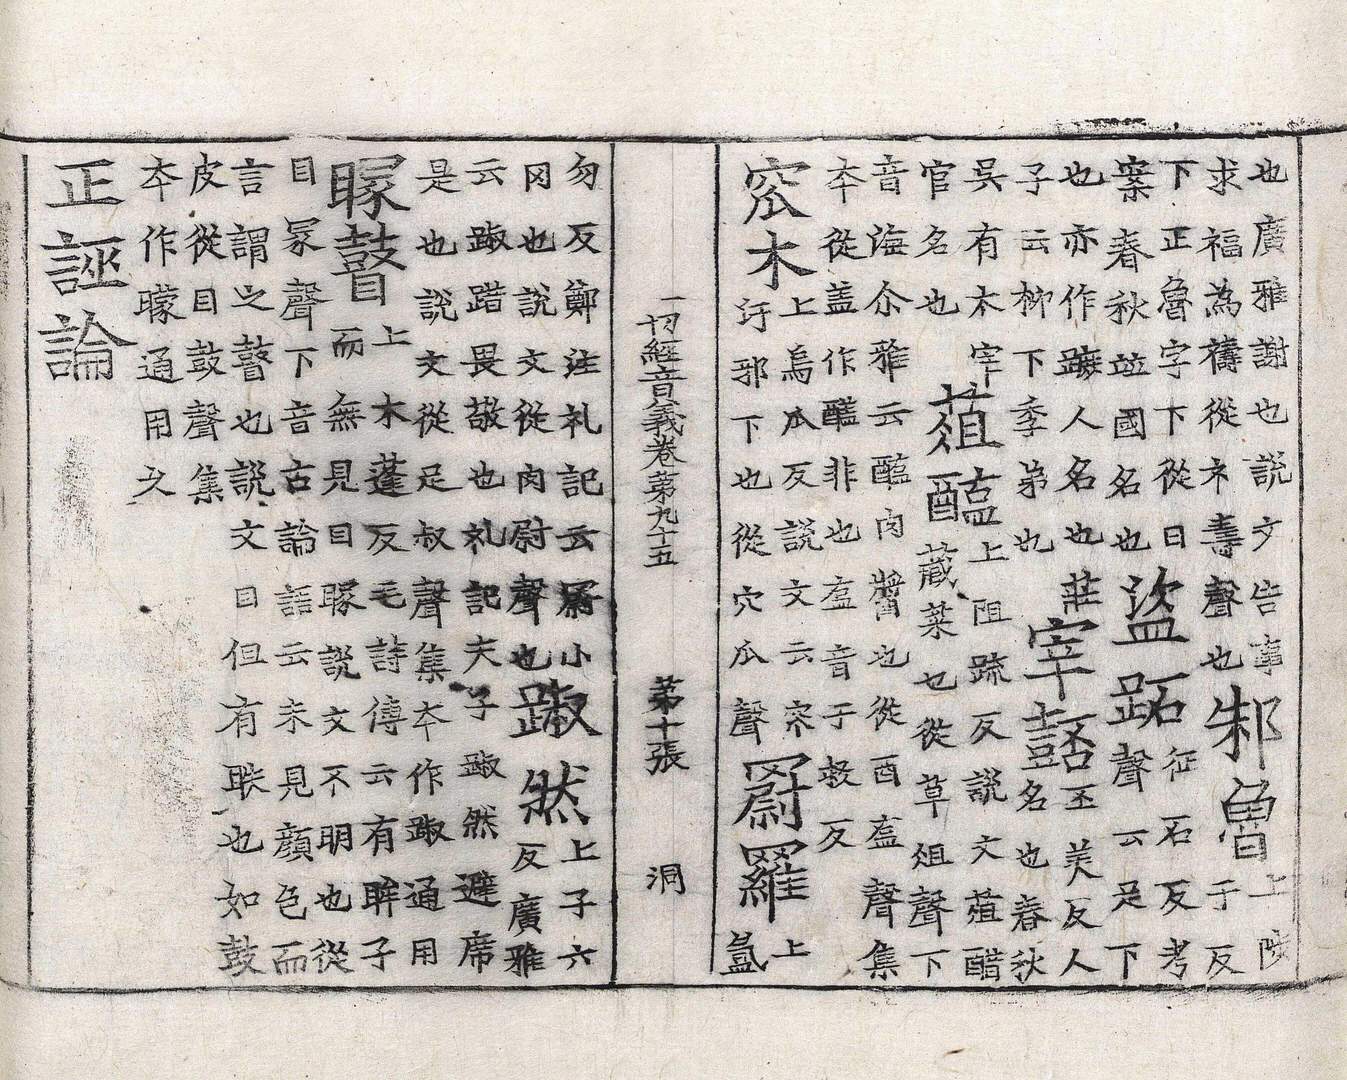 也廣雅謝也説文告事
求福為禱從示壽聲也
邾魯
上陟
于反
下正魯字下從日
案春秋竝國名也
盜跖
征石反考
聲云足下
也亦作蹠人名也莊
子云柳下季弟也
宰嚭
丕美反人
名也春秋
吳有太宰
官名也
葅醢
上阻疏反説文葅醋
藏菜也從草俎聲下
音海尒雅云醢肉醬也從酉𥁓聲集
夲從盖作醢非也𥁓音于救反
窊木
上烏瓜反説文云窊
汙邪下也從穴瓜聲
罻羅
上
氳
一切經音義卷第九十五 第十張 洞
勿反鄭注礼記云罻小
罔也説文從肉尉聲也
踧然
上子六
反廣雅
云踧踖畏敬也礼記夫子踧然避席
是也説文從足叔聲集夲作踧通用
矇瞽
上木蓬反毛詩傳云有眸子
而無見目矇説文不明也從
目冡聲下音古論語云未見顔色而
言謂之瞽也説文目但有眹也如鼓
皮從目鼓聲集
夲作矇通用文
正誣論